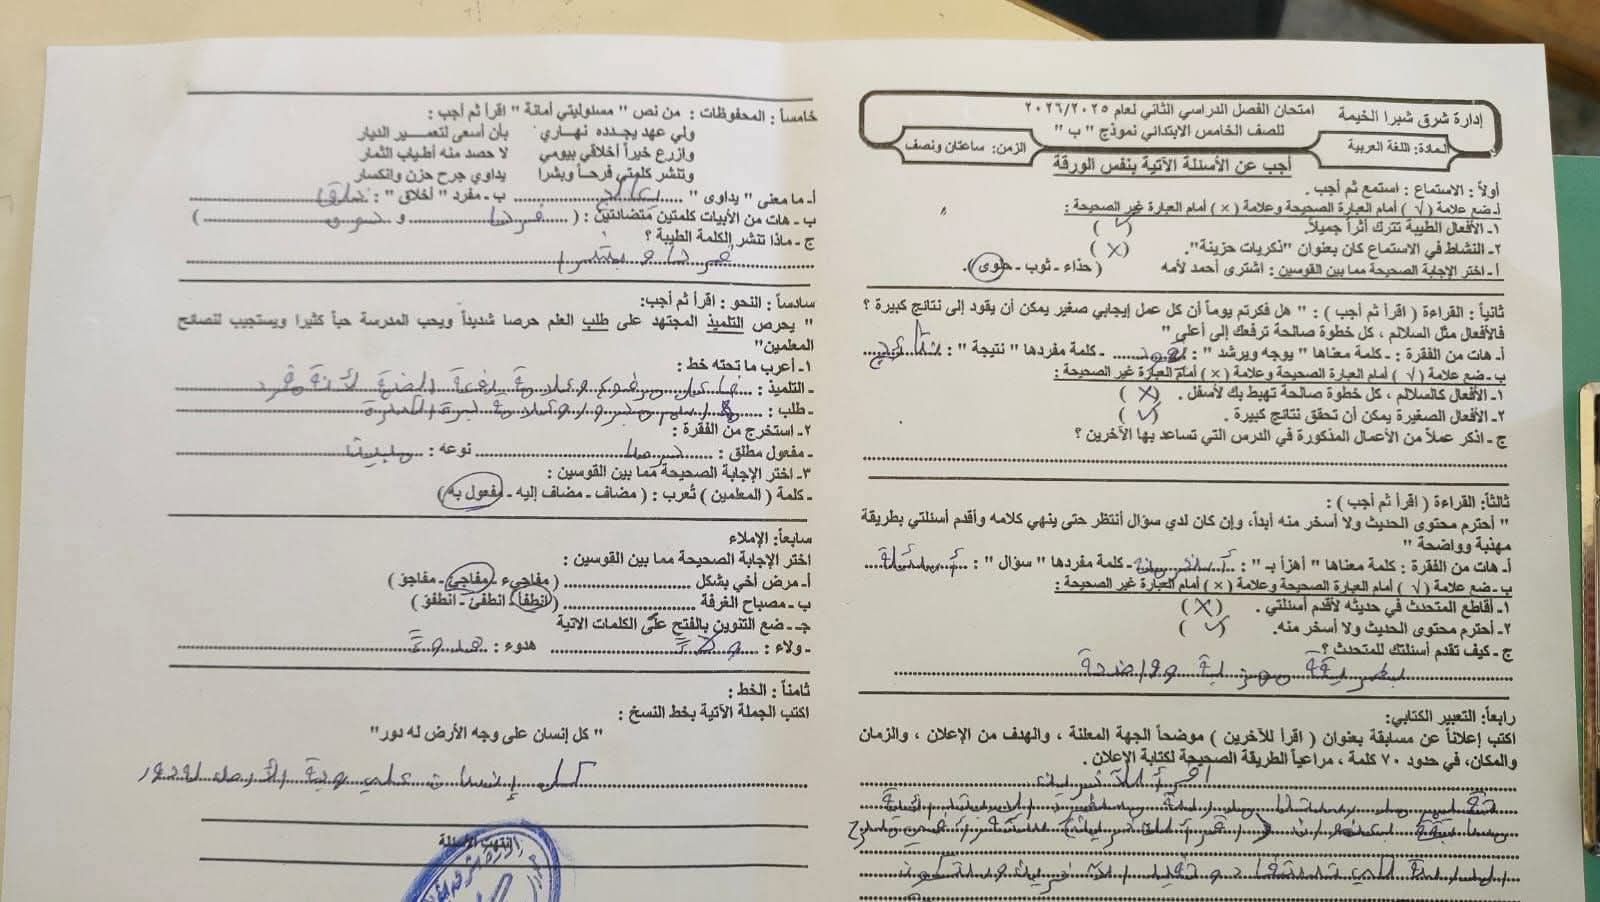 إدارة شرق شبرا الخيمة
امتحان الفصل الدراسي الثاني لعام ٢٠٢٦/٢٠٢٥
للصف الخامس الابتدائي نموذج " ب "
المادة: اللغة العربية
الزمن: ساعتان ونصف
أجب عن الأسئلة الآتية بنفس الورقة
أولاً : الاستماع : استمع ثم أجب .
أ- ضع علامة ( √ ) أمام العبارة الصحيحة وعلامة ( × ) أمام العبارة غير الصحيحة :
١- الأفعال الطيبة تترك أثراً جميلاً. ( ✓ )
٢- النشاط في الاستماع كان بعنوان "ذكريات حزينة". ( X )
أ - اختر الإجابة الصحيحة مما بين القوسين : اشترى أحمد لأمه ( حذاء - ثوب - حلوى ).
ثانياً : القراءة ( اقرأ ثم أجب ) : " هل فكرتم يوماً أن كل عمل إيجابي صغير يمكن أن يقود إلى نتائج كبيرة ؟
فالأفعال مثل السلالم ، كل خطوة صالحة ترفعك إلى أعلى "
أ- هات من الفقرة : - كلمة معناها " يوجه ويرشد " : يقود - كلمة مفردها " نتيجة " : نتائج
ب- ضع علامة ( √ ) أمام العبارة الصحيحة وعلامة ( × ) أمام العبارة غير الصحيحة :
١- الأفعال كالسلالم ، كل خطوة صالحة تهبط بك لأسفل . ( X )
٢- الأفعال الصغيرة يمكن أن تحقق نتائج كبيرة . ( ✓ )
ج - اذكر عملاً من الأعمال المذكورة في الدرس التي تساعد بها الآخرين ؟
ثالثاً: القراءة ( اقرأ ثم أجب ) :
" أحترم محتوى الحديث ولا أسخر منه أبداً، وإن كان لدي سؤال أنتظر حتى ينهي كلامه وأقدم أسئلتي بطريقة
مهذبة وواضحة "
أ- هات من الفقرة : كلمة معناها " أهزأ بـ " : - كلمة مفردها " سؤال " :
ب- ضع علامة ( √ ) أمام العبارة الصحيحة وعلامة ( × ) أمام العبارة غير الصحيحة :
١- أقاطع المتحدث في حديثه لأقدم أسئلتي . ( X )
٢- أحترم محتوى الحديث ولا أسخر منه. ( ✓ )
ج - كيف تقدم أسئلتك للمتحدث ؟
بطريقة مهذبة وواضحة
رابعاً: التعبير الكتابي:
اكتب إعلاناً عن مسابقة بعنوان ( اقرأ للآخرين ) موضحاً الجهة المعلنة ، والهدف من الإعلان ، والزمان
والمكان، في حدود ٧٠ كلمة ، مراعياً الطريقة الصحيحة لكتابة الإعلان .
اقرأ للآخرين
خامساً : المحفوظات : من نص " مسئوليتي أمانة " اقرأ ثم أجب :
ولي عهد يجدده نهاري بأن أسعى لتعمير الديار
وازرع خيراً أخلاقي بيومي لا حصد منه أطياب الثمار
وتنشر كلمتي فرحاً وبشرا يداوي جرح حزن وانكسار
أ- ما معنى " يداوى " يعالج ب - مفرد " أخلاق " : خلق
ب - هات من الأبيات كلمتين متضادتين : ( فرحا و )
ج - ماذا تنشر الكلمة الطيبة ؟
فرحا و بشرا
سادساً : النحو : اقرأ ثم أجب:
" يحرص التلميذ المجتهد على طلب العلم حرصا شديداً ويحب المدرسة حباً كثيرا ويستجيب لنصائح
المعلمين"
١- أعرب ما تحته خط :
- التلميذ : فاعل مرفوع وعلامة رفعة الضمة لأنة مفرد
- طلب : اسم مجرور وعلامة جرة الكسرة
٢- استخرج من الفقرة :
- مفعول مطلق : حرصا نوعه :
٣- اختر الإجابة الصحيحة مما بين القوسين :
- كلمة ( المعلمين ) تُعرب : ( مضاف - مضاف إليه - مفعول به )
سابعاً: الإملاء
اختر الإجابة الصحيحة مما بين القوسين :
أ- مرض أخي بشكل ( مفاجيء - مفاجئ - مفاجؤ )
ب - مصباح الغرفة ( انطفأ - انطفئ - انطفؤ )
جـ - ضع التنوين بالفتح على الكلمات الاتية
- ولاء : هدوء :
ثامناً : الخط :
اكتب الجملة الآتية بخط النسخ :
" كل إنسان على وجه الأرض له دور"
كل إنسان على وجة الأرض له دور
انتهت الأسئلة